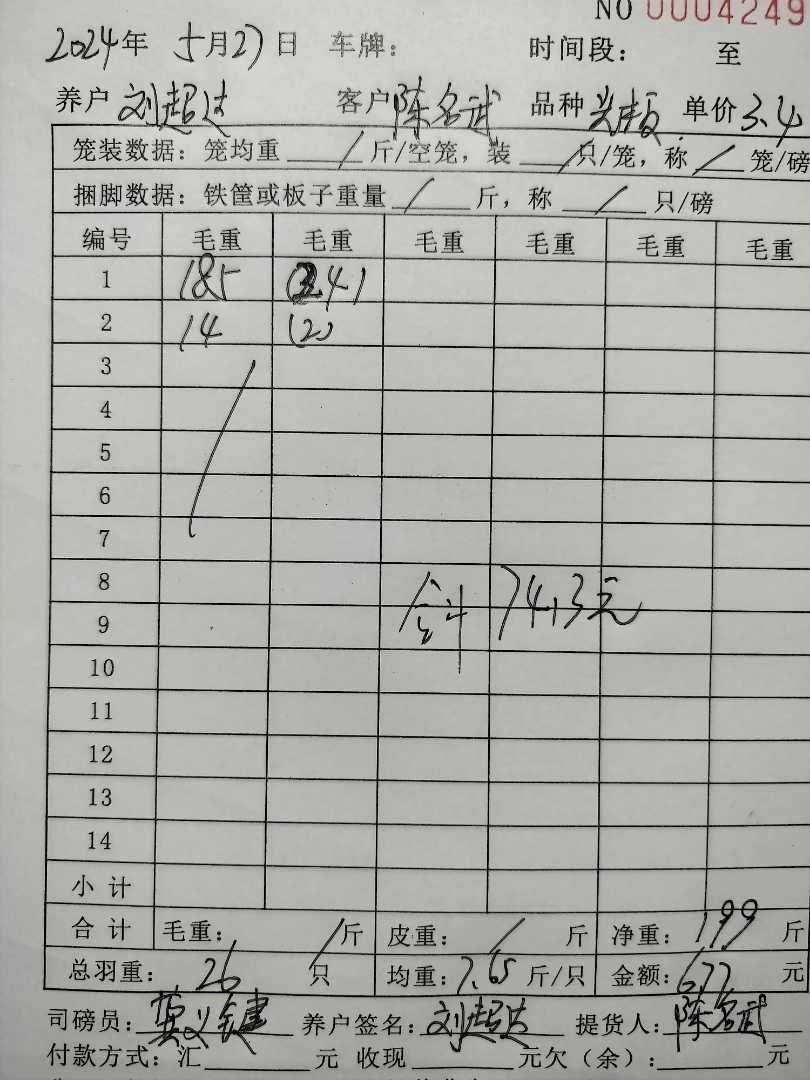 NO 0004249
2024年 5月27日 车牌: 时间段: 至
养户 刘超达 客户 陈名武 品种 单价 3.4
笼装数据: 笼均重 / 斤/空笼, 装 / 只/笼, 称 / 笼/磅
捆脚数据: 铁筐或板子重量 / 斤, 称 / 只/磅
编号 毛重 毛重 毛重 毛重 毛重 毛重
1 185
2 14 (2)
3
4
5
6
7
8
合计 7413元
9
10
11
12
13
14
小计
合计 毛重: / 斤 皮重: / 斤 净重: 199 斤
总羽重: 26 只 均重: 7.65 斤/只 金额: 677 元
司磅员: 养户签名: 刘超达 提货人: 陈名武
付款方式: 汇 元 收现 元欠(余): 元